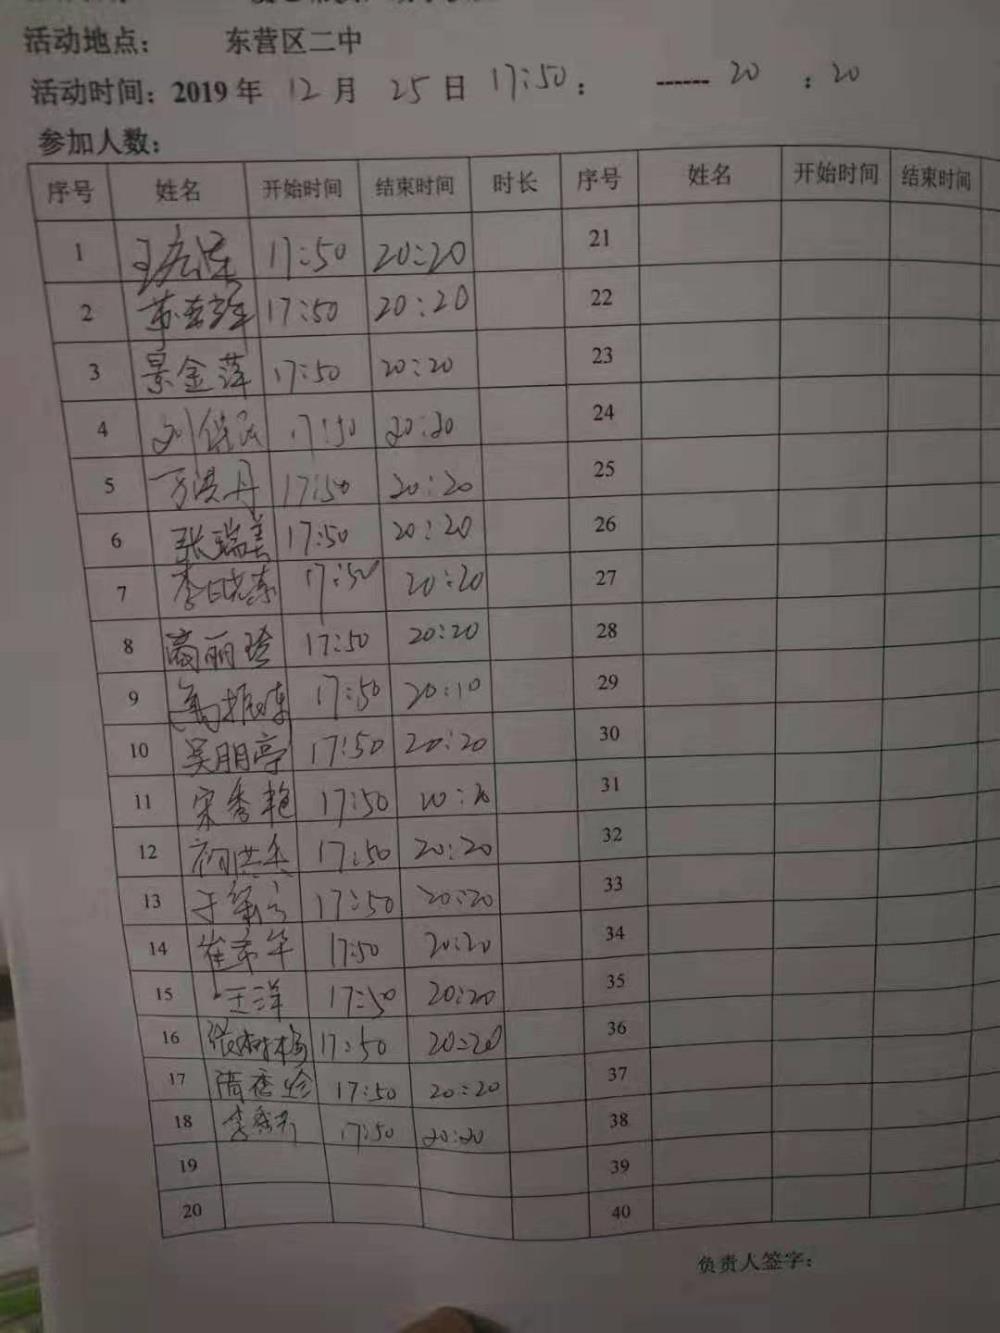 活动地点： 东营区二中
活动时间：2019年 12月 25日 17:50： ------ 20 ：20
参加人数：
序号 姓名 开始时间 结束时间 时长 序号 姓名 开始时间 结束时间
1 17:50 20:20 21
2 17:50 20:20 22
3 景金萍 17:50 20:20 23
4 17:50 20:20 24
5 万洪丹 17:50 20:20 25
6 张瑞美 17:50 20:20 26
7 李晓东 17:50 20:20 27
8 高丽 17:50 20:20 28
9 17:50 20:10 29
10 吴朋亭 17:50 20:20 30
11 宋秀艳 17:50 20:20 31
12 17:50 20:20 32
13 17:50 20:20 33
14 崔 17:50 20:20 34
15 王洋 17:50 20:20 35
16 张树梅 17:50 20:20 36
17 隋香珍 17:50 20:20 37
18 李秀芳 17:50 20:20 38
19 39
20 40
负责人签字：